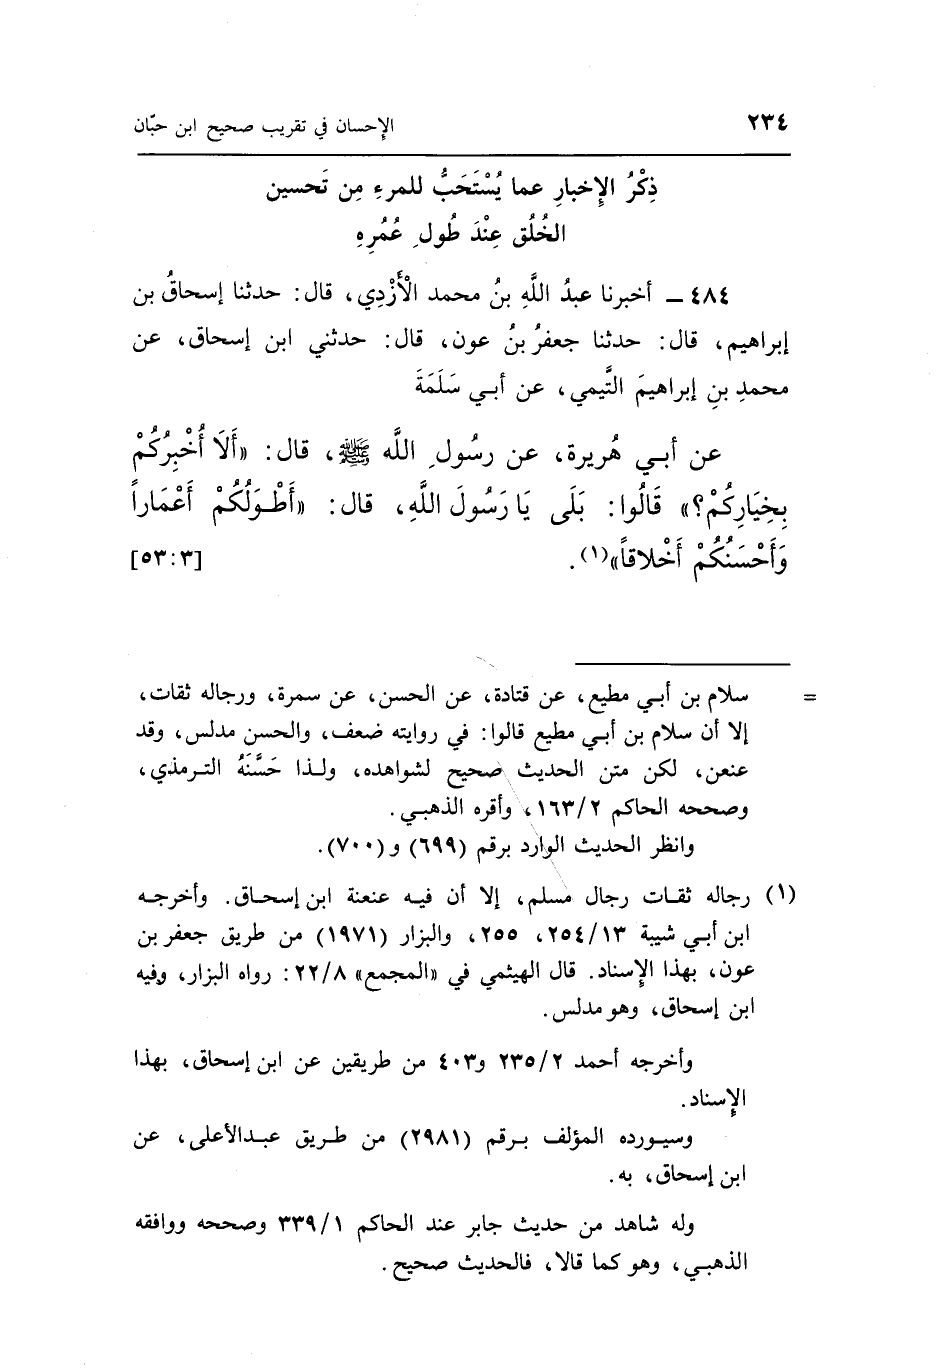 ٢٣٤ الإحسان في تقريب صحيح ابن حبّان
ذِكْرُ الإِخبارِ عما يُسْتَحَبُّ للمرءِ مِن تَحسين
الخُلُق عِنْدَ طُولِ عُمُرِهِ
٤٨٤ ـ أخبرنا عبدُ اللَّهِ بنُ محمد الْأَزْدِي، قال: حدثنا إسحاقُ بن
إبراهيم، قال: حدثنا جعفرُ بنُ عون، قال: حدثني ابن إسحاق، عن
محمدِ بنِ إبراهيمَ التَّيمي، عن أبي سَلَمَةَ
عن أبي هُريرة، عن رسُولِ اللَّه ﷺ، قال: «أَلَا أُخْبِرُكُمْ
بِخِيَارِكُمْ؟» قَالُوا: بَلَى يَا رَسُولَ اللَّهِ، قال: «أَطْوَلُكُمْ أَعْمَاراً
وَأَحْسَنُكُمْ أَخْلاقاً»(١). [٥٣:٣]
= سلام بن أبي مطيع، عن قتادة، عن الحسن، عن سمرة، ورجاله ثقات،
إلا أن سلام بن أبي مطيع قالوا: في روايته ضعف، والحسن مدلس، وقد
عنعن، لكن متن الحديث صحيح لشواهده، ولذا حَسَّنَهُ الترمذي،
وصححه الحاكم ١٦٣/٢، وأقره الذهبي.
وانظر الحديث الوارد برقم (٦٩٩) و(٧٠٠).
(١) رجاله ثقات رجال مسلم، إلا أن فيه عنعنة ابن إسحاق. وأخرجه
ابن أبي شيبة ٢٥٤/١٣، ٢٥٥، والبزار (١٩٧١) من طريق جعفر بن
عون، بهذا الإسناد. قال الهيثمي في «المجمع» ٢٢/٨: رواه البزار، وفيه
ابن إسحاق، وهو مدلس.
وأخرجه أحمد ٢٣٥/٢ و٤٠٣ من طريقين عن ابن إسحاق، بهذا
الإسناد.
وسيورده المؤلف برقم (٢٩٨١) من طريق عبدالأعلى، عن
ابن إسحاق، به.
وله شاهد من حديث جابر عند الحاكم ٣٣٩/١ وصححه ووافقه
الذهبي، وهو كما قالا، فالحديث صحيح.